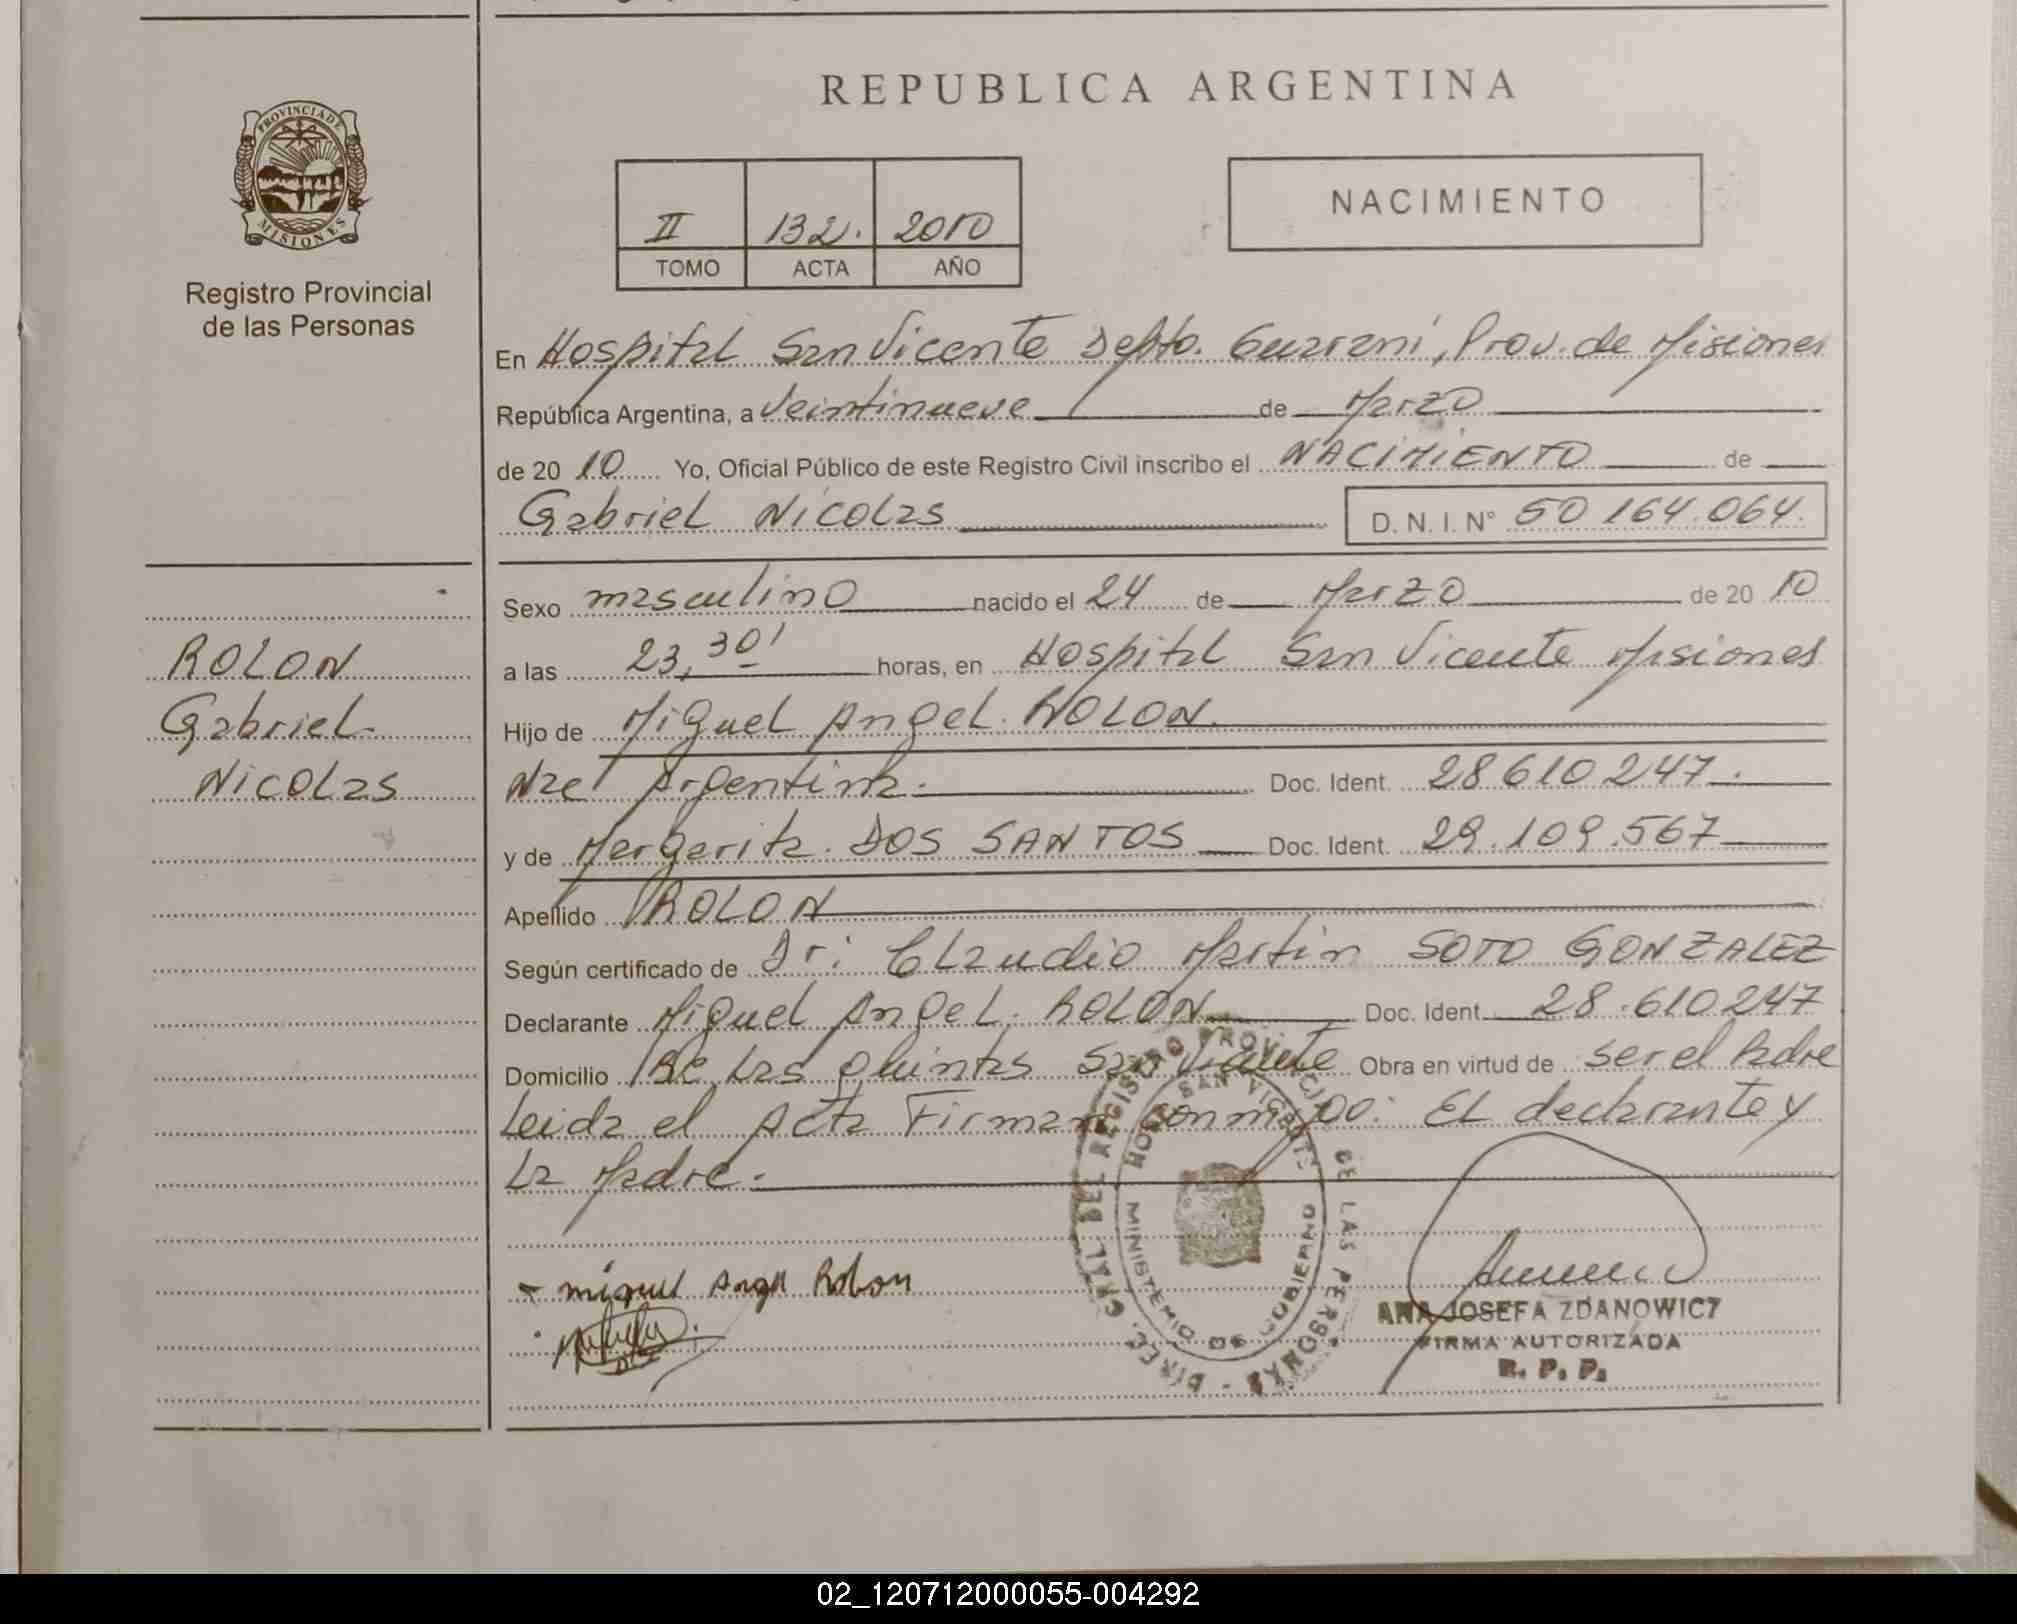 REPUBLICA ARGENTINA
PROVINCIA DE
MISIONES
Registro Provincial
de las Personas
II 132. 2010
TOMO ACTA AÑO
NACIMIENTO
En Hospital San Vicente Depto. Guarani, Prov. de Misiones
República Argentina, a Veintinueve de Marzo
de 20 10 Yo, Oficial Público de este Registro Civil inscribo el NACIMIENTO de
Gabriel Nicolas D. N. I. N° 50 164.064.
Sexo masculino nacido el 24 de Marzo de 20 10
a las 23,30' horas, en Hospital San Vicente Misiones
Hijo de Miguel Angel ROLON.
Nac Argentina. Doc. Ident. 28 610 247.
y de Margarita DOS SANTOS Doc. Ident. 29.109.567
Apellido ROLON
Según certificado de Dr: Claudio Martin SOTO GONZALEZ
Declarante Miguel Angel. ROLON Doc. Ident. 28.610247
Domicilio Las Quintas San Vicente Obra en virtud de ser el Padre
Leida el Acta Firman conmigo: EL declarante y
La Madre.
ROLON
Gabriel
Nicolas
miguel Angel Rolon
DIREC. GRAL. DEL REGISTRO PROVINCIAL DE LAS PERSONAS
HOSP. SAN VICENTE
MINISTERIO DE GOBIERNO
ANA JOSEFA ZDANOWICZ
FIRMA AUTORIZADA
R. P. P.
02_120712000055-004292